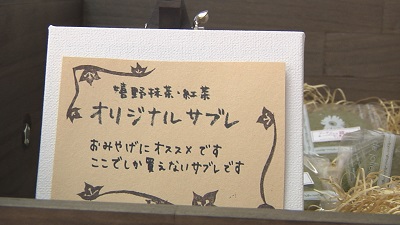 嬉野抹茶・紅茶
オリジナルサブレ
おみやげにオススメです
ここでしか買えないサブレです